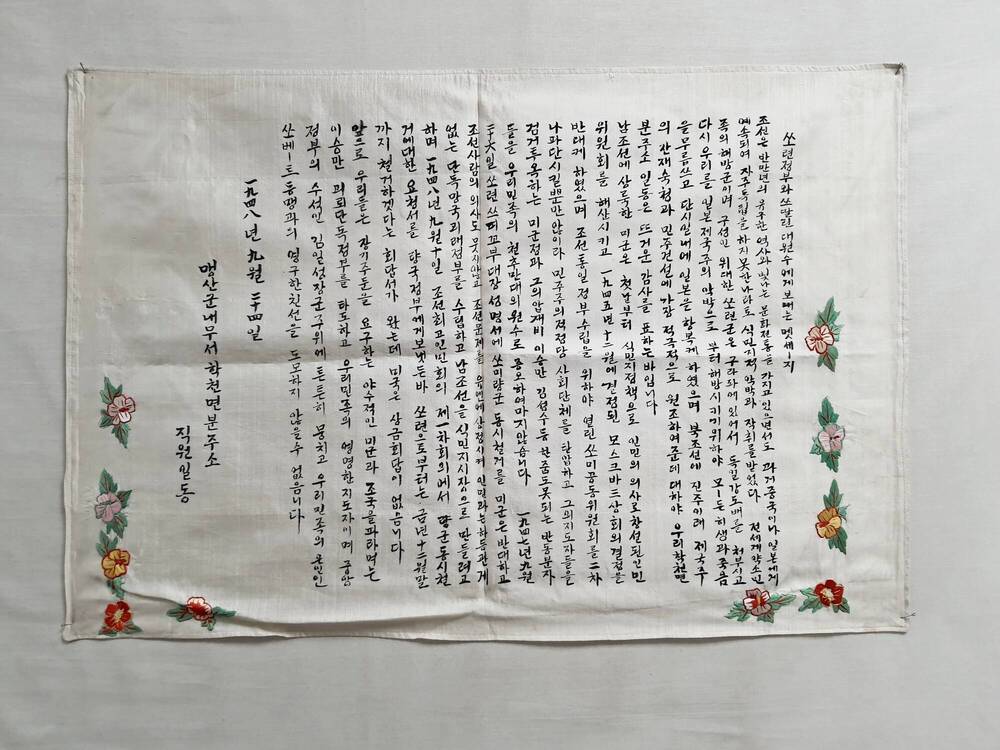 쏘련정부와 쓰딸린대원수에게보내는 멧세ー지
조선은 반만년의 유구한 역사와 빛나는 문화전통을 가지고있으면서도 과거중국이나 일본에게
예속되여 자주독립을 하지못한나라로 식민지적 압박과 착취를받었다 전세계약소민
족의 해방군이며 구성인 위대한 쏘련군은 구라파에있어서 독일강도배를 처부시고
다시 우리를 일본제국주의 압박으로 부터해방시키기위하야 모ー든희생과 죽음
을무릅쓰고 단시일내에 일본을 항복케하였으며 북조선에 진주이래 제국주
의 잔재숙청과 민주건설에 가장 적극적으로 원조하여준데 대하야 우리학천면
분주소 일동은 뜨거운 감사를 표하는바입니다
남조선에 상륙한 미군은 첫날부터 식민지정책으로 인민의 의사로창설된인민
위원회를 해산시키고 一九四五년十二월에 결정된 모스크바三상회의결정을
반대케 하였으며 조선통일정부수립을 위하야 열린쏘미공동위원회를 二차
나파단시킬뿐만않이라 민주주의적정당 사회단체를 탄압하고 그의지도자들을
검거투옥하는 미군정과 그의앞재비 이승만 김성수등 한줌도못되는 반동분자
들을 우리민족의 천추만대의원수로 증오하여마지않습니다 一九四七년九월
二十六일 쏘련 쓰띄꼬부대장 성명서에 쏘미량군 동시철거를 미군은반대하고
조선사람의 의사도 묻지않고 조선문제를 유엔에상정시켜 인민과는하등관계
없는 단독망국괴래정부를 수립하고남조선을 식민지시장으로 만들려고
하며 一九四八년九월十일 조선최고인민회의 제一차회의에서 량군동시철
거에대한 요청서를 량국정부에게보냇든바 쏘련으로부터는 금년十二월말
까지 철거하겟다는 회답서가 왓는데 미국은 상금회답이 없습니다
앞으로 우리들은 장기주둔을 요구하는 야수적인 미군과 조국을파라먹는
이승만 괴뢰단독정부를 타도하고 우리민족의 영명한지도자이며 중앙
정부의 수성인 김일성장군주위에 튼튼히 뭉치고 우리민족의 은인인
쏘베ー트동맹과의 영구한친선을 도모하지 않을수 없읍니다
一九四八년九월二十四일
맹산군내무서학천면분주소
직원일동